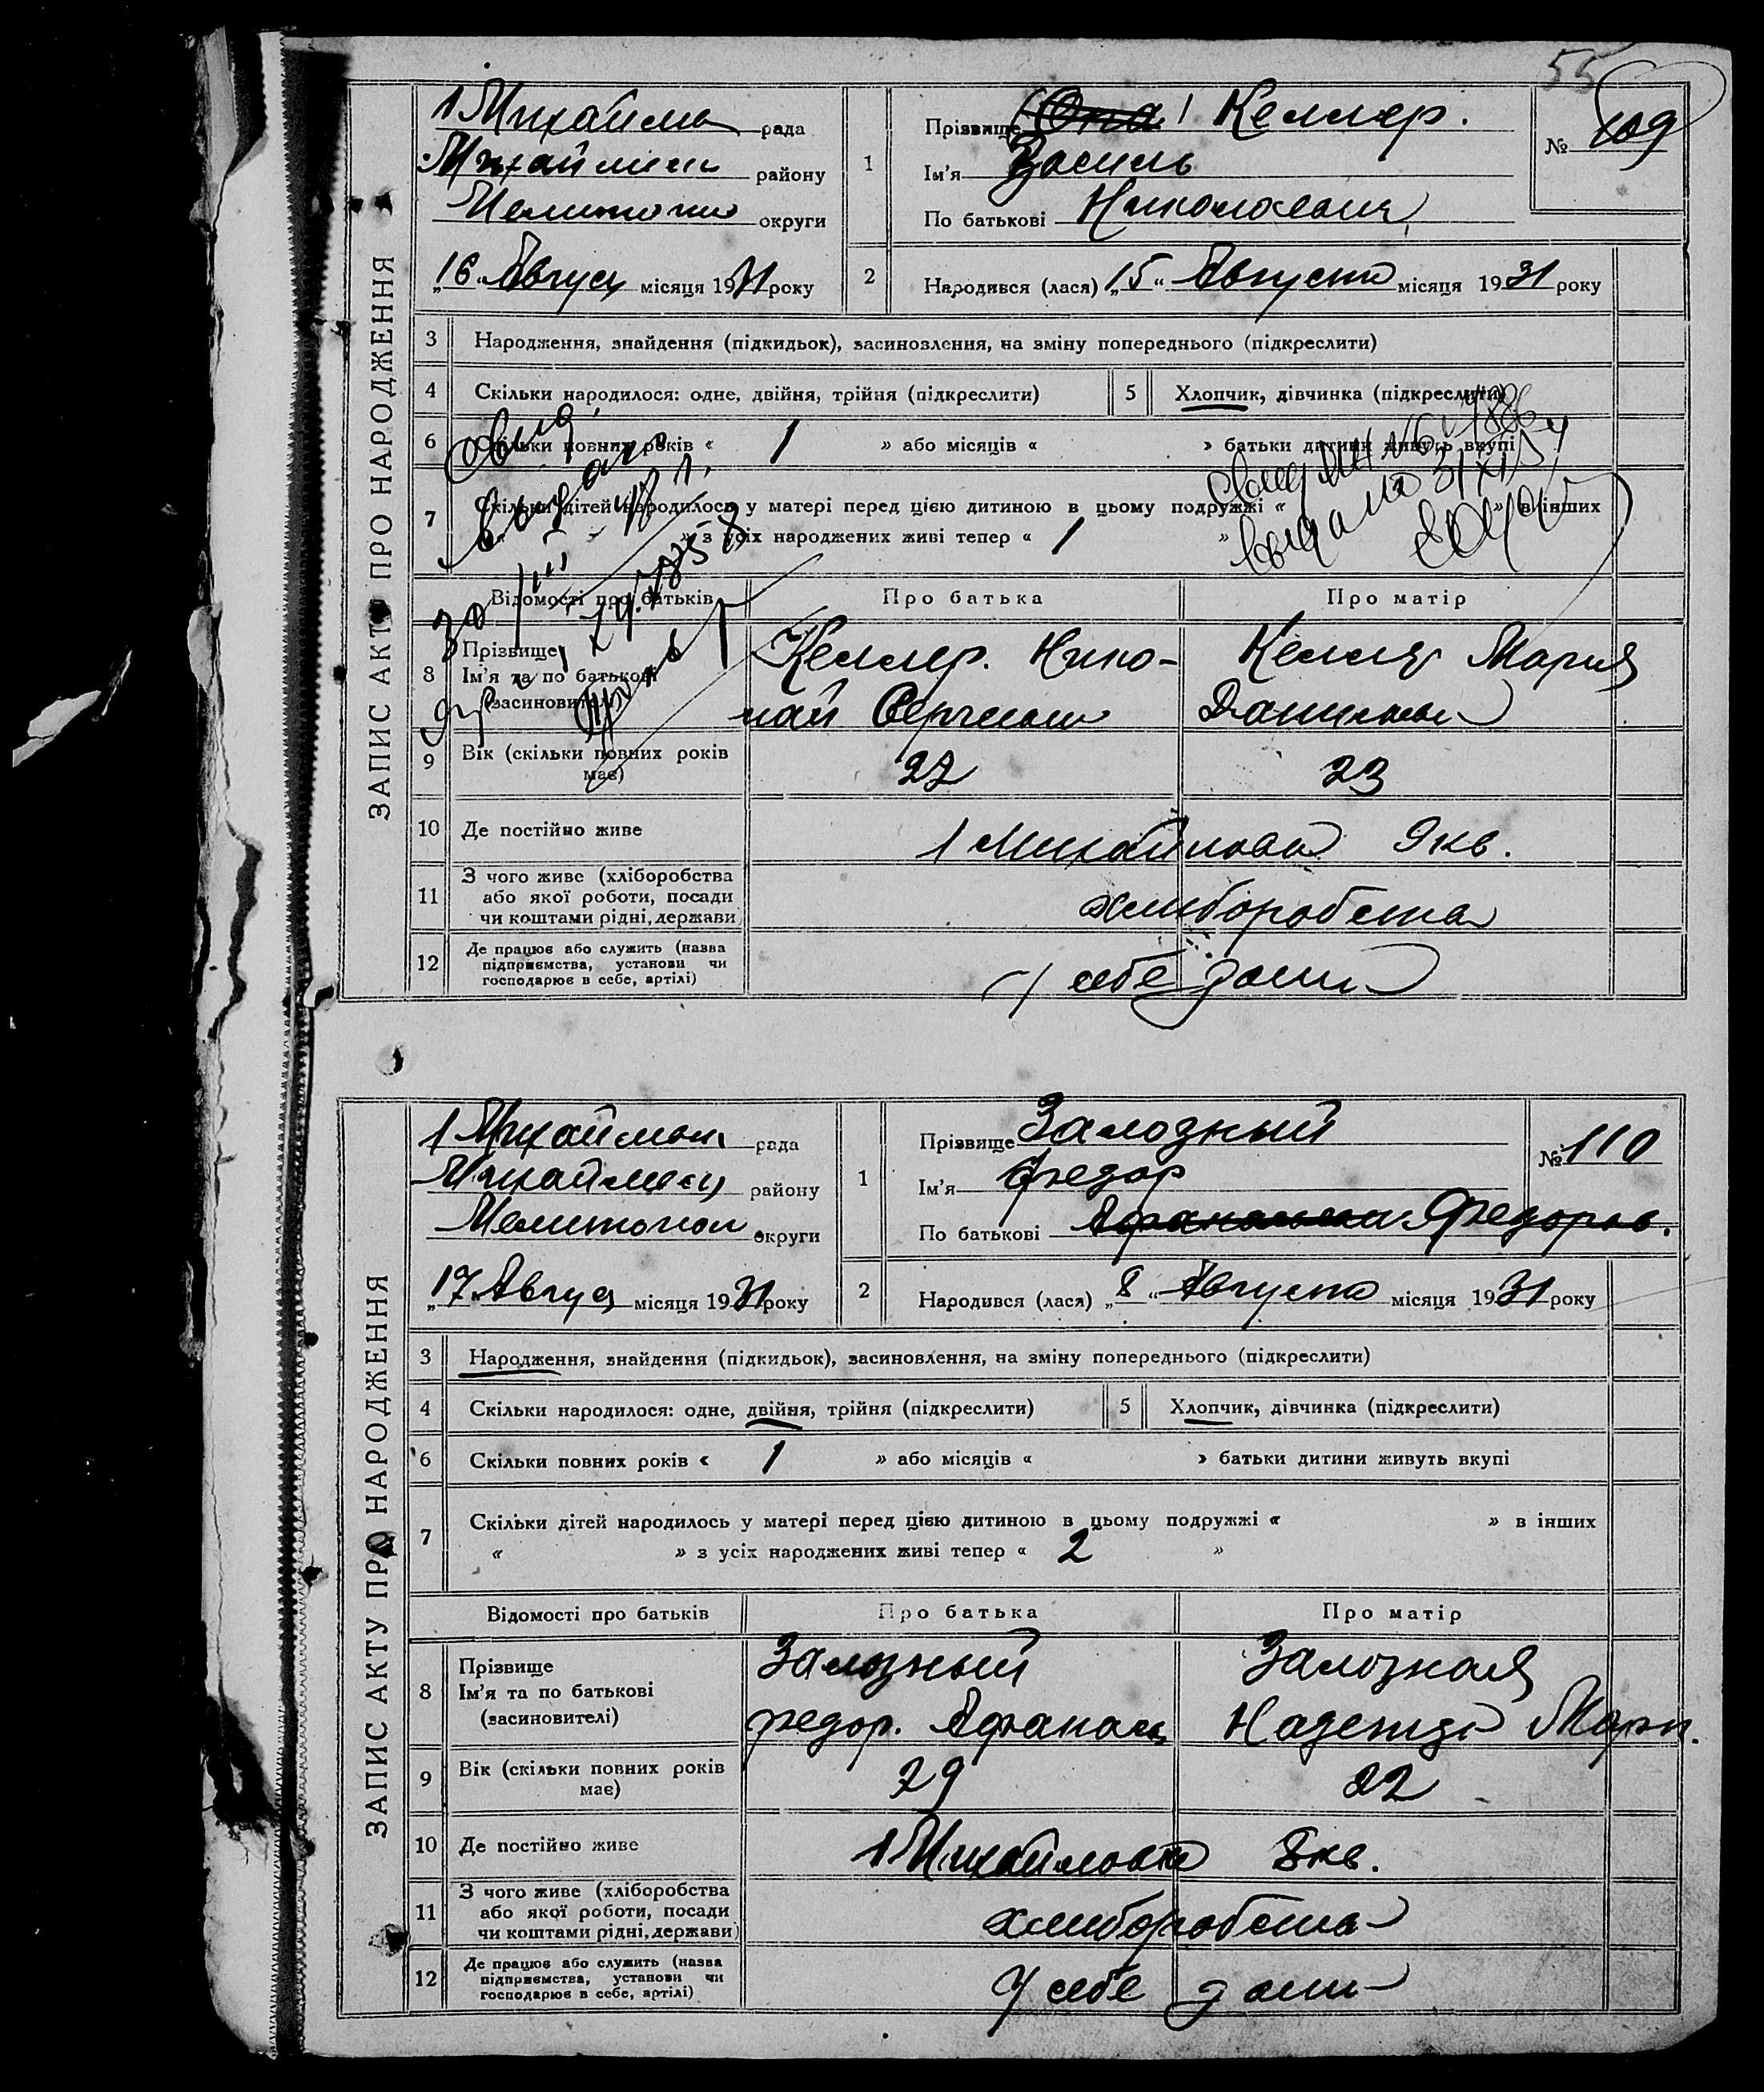 55
ЗАПИС АКТУ ПРО НАРОДЖЕННЯ
рада
району
округи
„16“ Август місяця 1931 року
1
Прізвище Келлер.
Ім'я Василь
По батькові Николаевич
№ 109
2
Народився (лася) „15“ Августа місяця 1931 року
3 Народження, знайдення (підкидьок), засиновлення, на зміну попереднього (підкреслити)
4 Скільки народилося: одне, двійня, трійня (підкреслити)
5 Хлопчик, дівчинка (підкреслити)
6 Скільки повних років « 1 » або місяців « » батьки дитини живуть вкупі
7 Скільки дітей народилось у матері перед цією дитиною в цьому подружжі « » в інших
» з усіх народжених живі тепер « 1 »
Відомості про батьків Про батька Про матір
8 Прізвище
Ім'я та по батькові
(засиновителі)
Келлер. Нико-
лай
Келлер Мария
9 Вік (скільки повних років
має)
22 23
10 Де постійно живе 1 Михайловка 9 кв.
11 З чого живе (хліборобства
або якої роботи, посади
чи коштами рідні, держави)
хлиборобства
12 Де працює або служить (назва
підприємства, установи чи
господарює в себе, артілі)
у себе дома
ЗАПИС АКТУ ПРО НАРОДЖЕННЯ
рада
району
Мелитопол округи
„17 Август місяця 1931 року
1
Прізвище Залозный
Ім'я Федор
По батькові Федоров.
№ 110
2
Народився (лася) „8“ Августа місяця 1931 року
3 Народження, знайдення (підкидьок), засиновлення, на зміну попереднього (підкреслити)
4 Скільки народилося: одне, двійня, трійня (підкреслити)
5 Хлопчик, дівчинка (підкреслити)
6 Скільки повних років « 1 » або місяців « » батьки дитини живуть вкупі
7 Скільки дітей народилось у матері перед цією дитиною в цьому подружжі « » в інших
« » з усіх народжених живі тепер « 2 »
Відомості про батьків Про батька Про матір
8 Прізвище
Ім'я та по батькові
(засиновителі)
Залозный
Федор. Афанас
Залозная
Надежда
9 Вік (скільки повних років
має)
29 22
10 Де постійно живе 1 Михайловка 8 кв.
11 З чого живе (хліборобства
або якої роботи, посади
чи коштами рідні, держави)
хлиборобства
12 Де працює або служить (назва
підприємства, установи чи
господарює в себе, артілі)
У себе дома